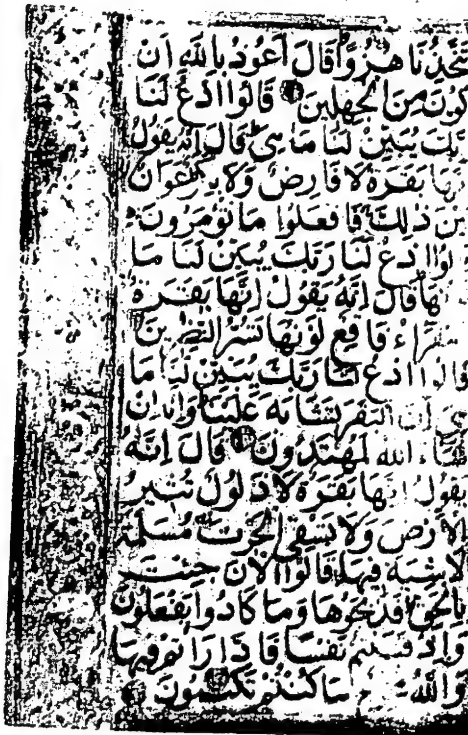 تتخذنا هزوا قال اعوذ بالله ان
كون من الجهلين قالوا ادع لنا
ربك يبين لنا ما هي قال انه يقول
نها بقرة لا فارض ولا بكر عوان
بين ذلك فافعلوا ما تؤمرون
لوا ادع لنا ربك يبين لنا ما
لونها قال انه يقول انها بقرة
صفراء فاقع لونها تسر النظرين
قالوا ادع لنا ربك يبين لنا ما
هي ان البقر تشابه علينا وانا ان
شاء الله لمهتدون قال انه
يقول انها بقرة لا ذلول تثير
الارض ولا تسقي الحرث مسلمة
لا شية فيها قالوا الان جئت
بالحق فذبحوها وما كادوا يفعلون
واذ قتلتم نفسا فادارأتم فيها
والله ما كنتم تكتمون